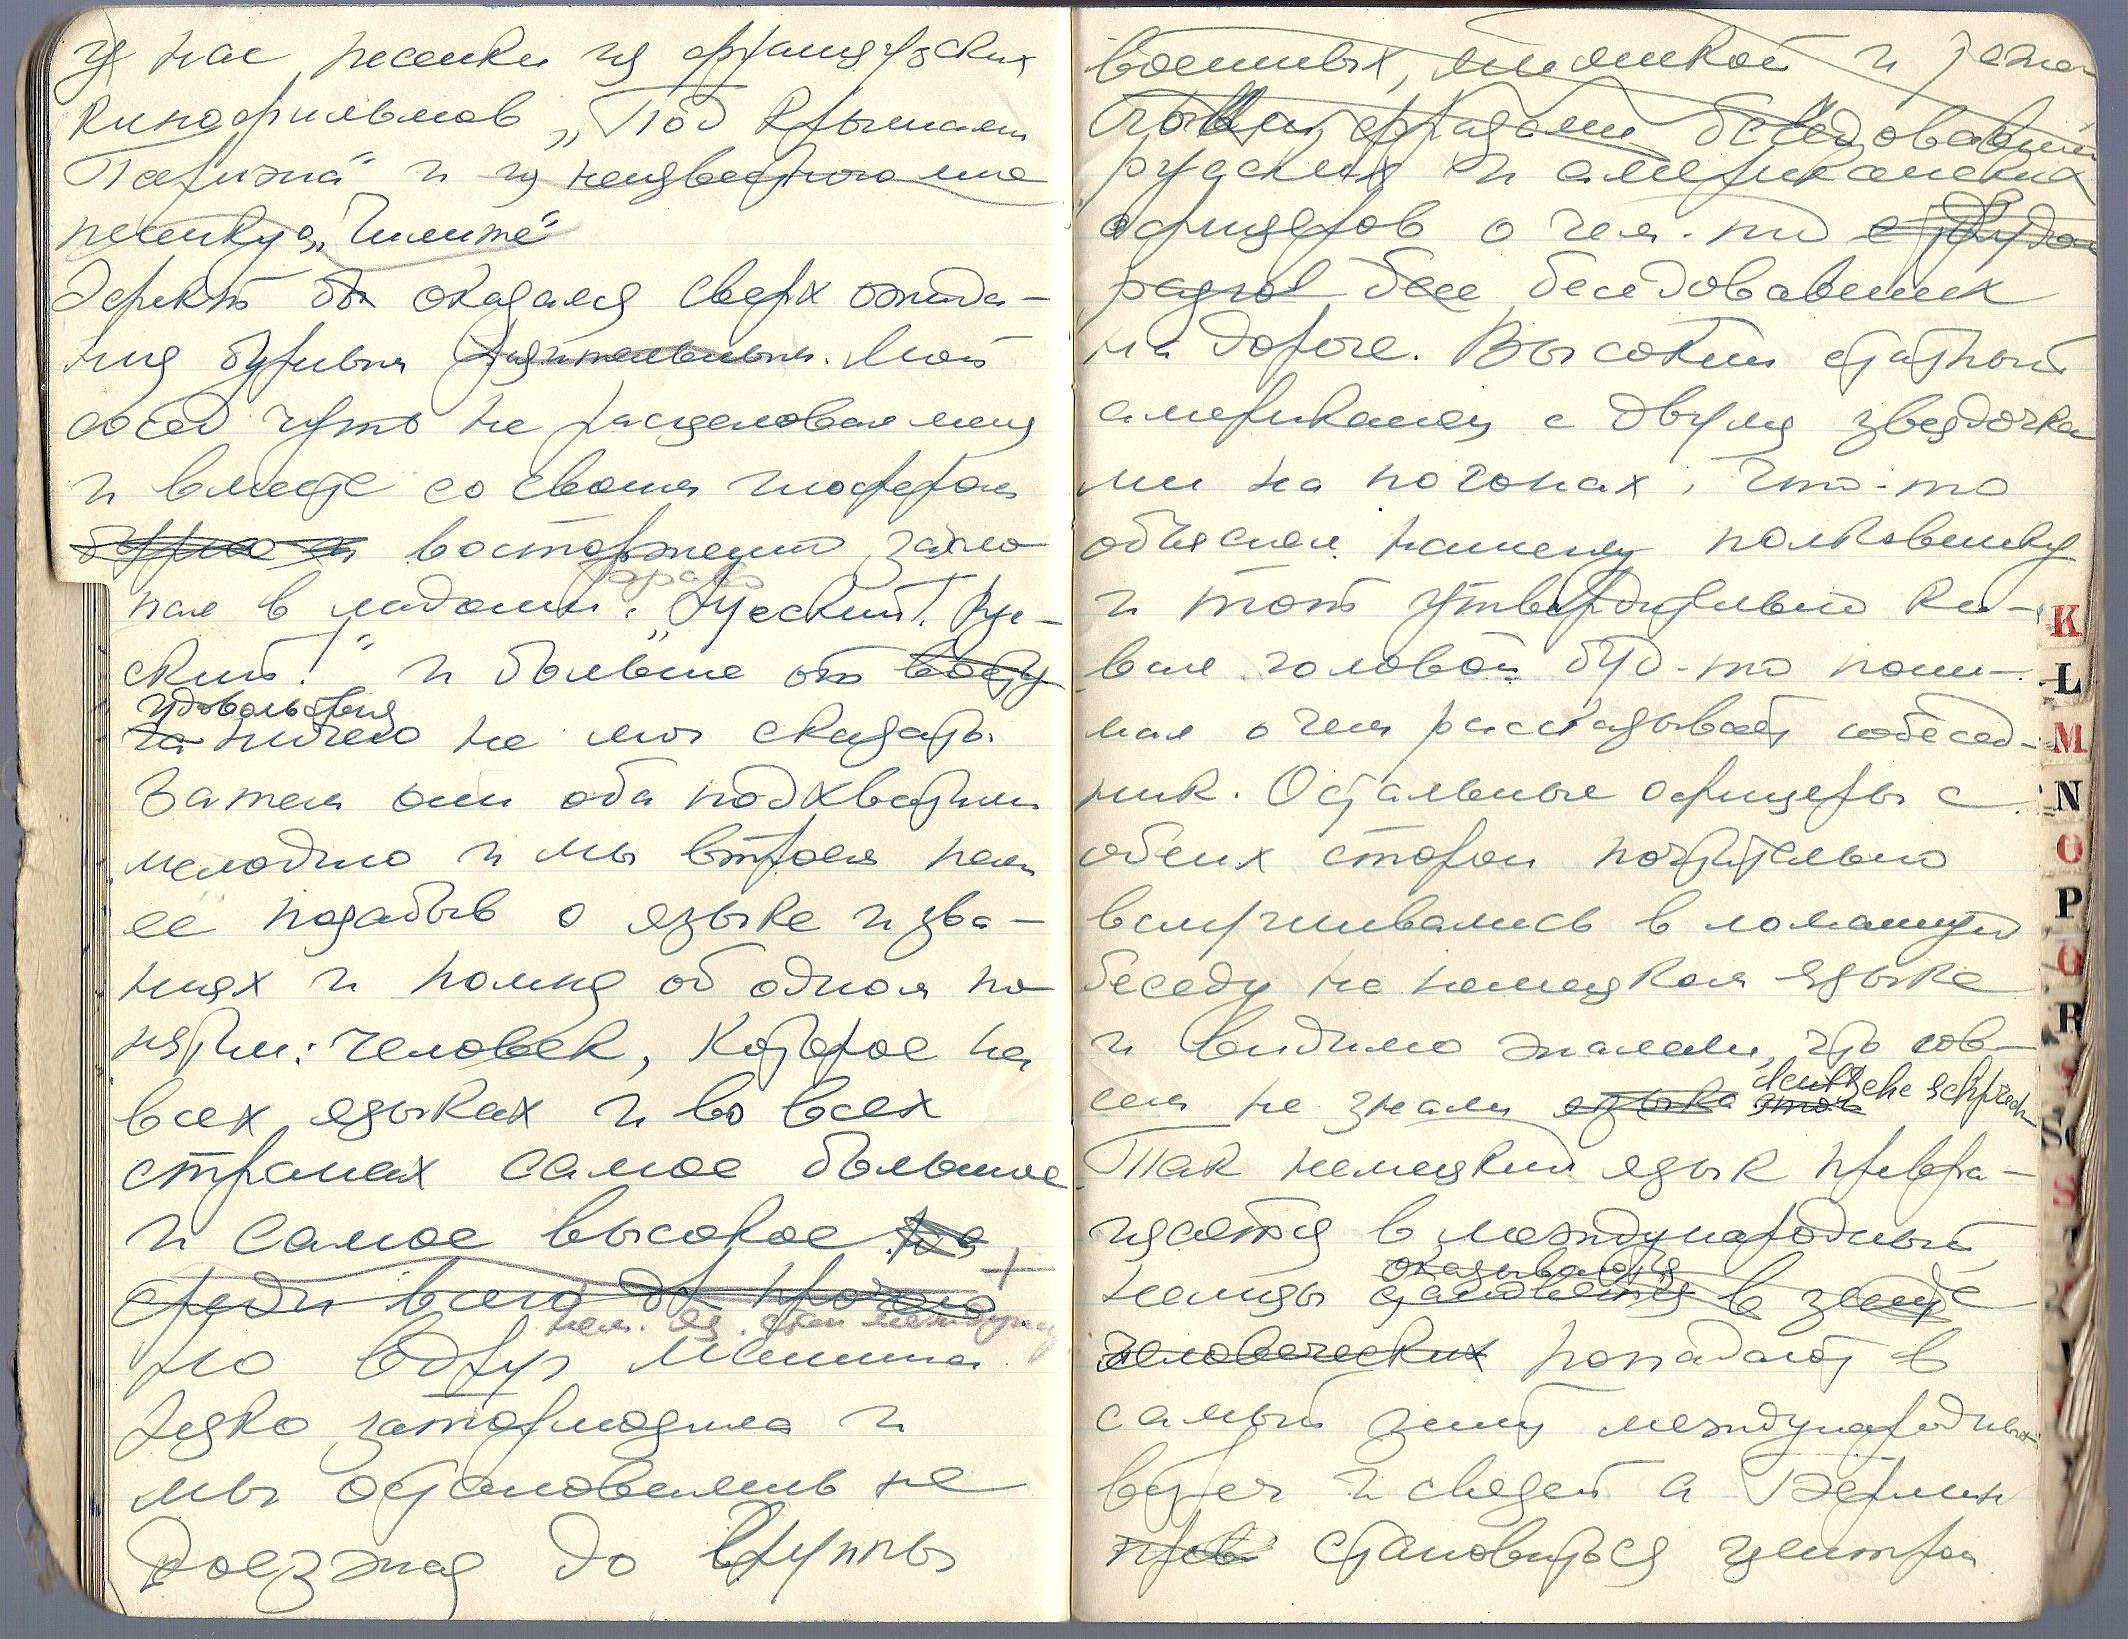 у нас песенки из французских
кинофильмов „Под крышами
Парижа" и из неизвестного мне
песенку о „Чилите"
Эфект бы оказался сверх ожида-
ния бурным. Мой
сосед чуть не расцеловал меня
и вместе со своим шофером
восторженно захло-
браво
пал в ладоши: „Русский! Рус-
ский!" и больше от
удовольствия
ничего не мог сказать.
Затем они оба подхватили
мелодию и мы втроем пели
её позабыв о языке и зва-
ниях и помня об одном по-
нятии: человек, которое на
всех языках и во всех
странах самое большое
и самое высокое
среди всего прочего
нем. яз. стал междунар
Но вдруг машина
резко затормозила и
мы остановились не
доезжая до группы
военных,
беседовавших
русских и американских
офицеров о чем-то
беседовавших
на дороге. Высокий статный
американец с двумя звездочка
ми на погонах, что-то
объяснял нашему полковнику
и тот утвердительно ки-
вал головой буд-то пони-
мал о чем рассказывает собесед-
ник. Остальные офицеры с
обеих сторон почтительно
вслушивались в ломанную
беседу на немецком языке
и видимо жалели, что сов-
deutsche schprech
сем не знали языка этого
Так немецкий язык превра-
щается в международный
оказываются
немцы становятся в
человеческих попадают в
самый международных
встреч и связей а Берлин
становиться центром